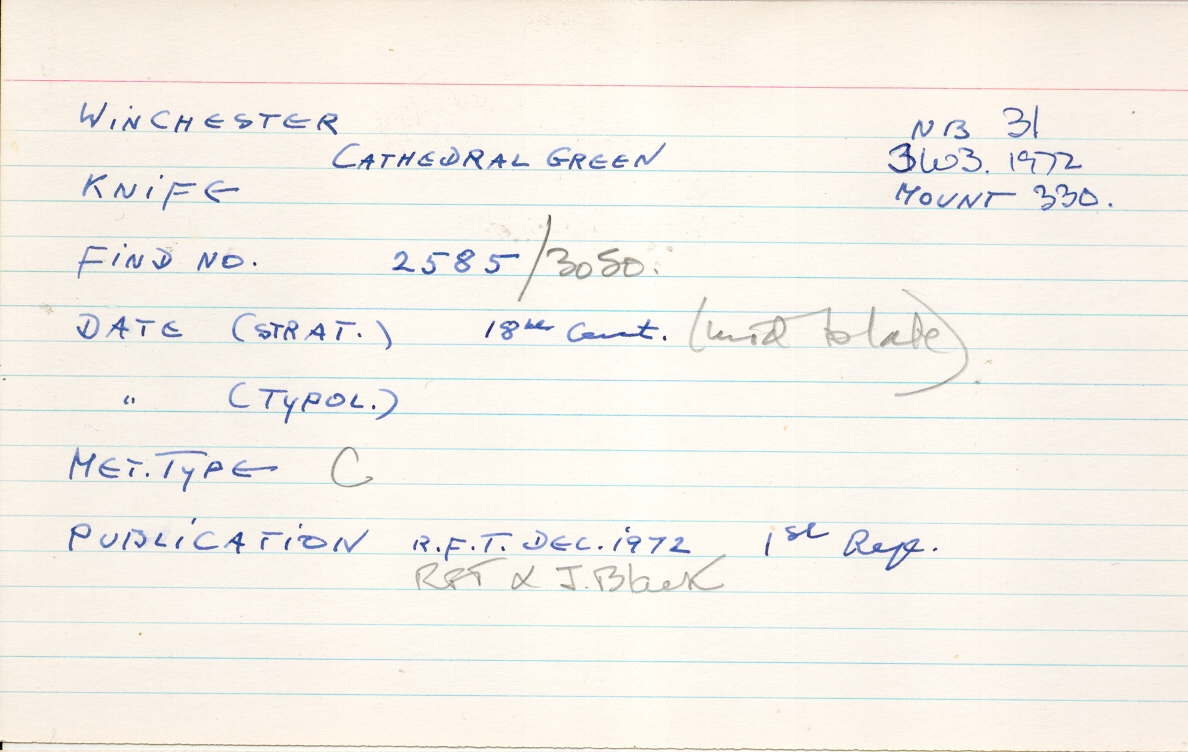 WINCHESTER
CATHEDRAL GREEN
KNIFE
NB 31
3W3. 1972
MOUNT 330.
FIND NO. 2585/3050.
DATE (STRAT.) 18th Cent. (mid to late).
" (TYPOL.)
MET. TYPE C
PUBLICATION R.F.T. DEC. 1972 1st Rep.
RFT & J. Black